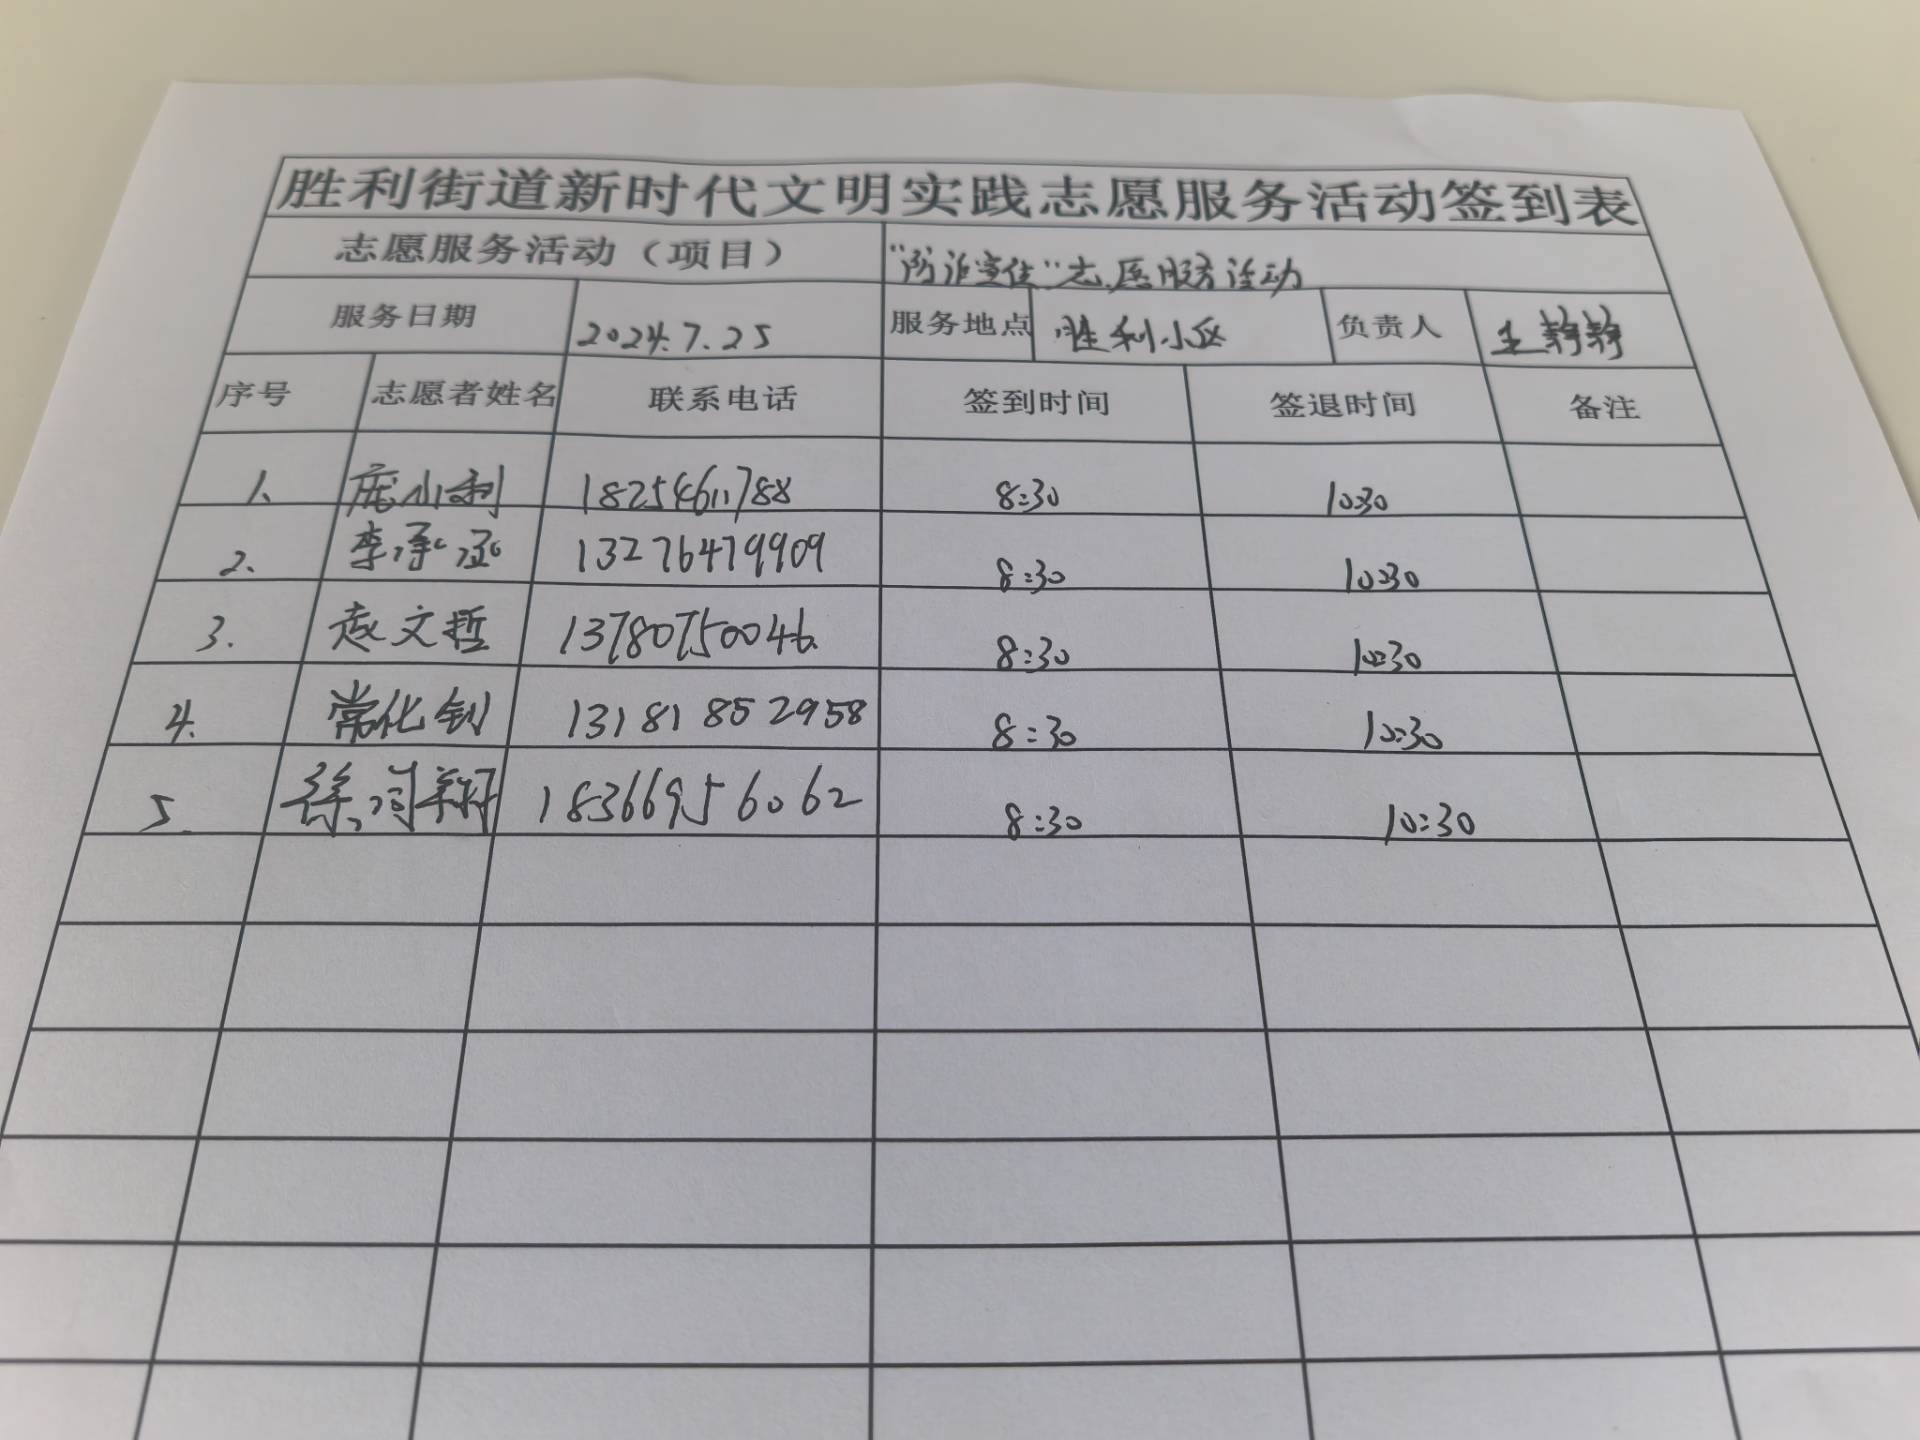 胜利街道新时代文明实践志愿服务活动签到表
志愿服务活动（项目） “防诈宣传”志愿服务活动
服务日期 2024.7.25 服务地点 胜利小区 负责人 王静静
序号 志愿者姓名 联系电话 签到时间 签退时间 备注
1、 庞小利 18254611788 8:30 10:30
2. 李承承 13276479909 8:30 10:30
3. 赵文哲 13780750046 8:30 10:30
4. 常化钊 13181852958 8:30 10:30
5. 徐 18366956062 8:30 10:30